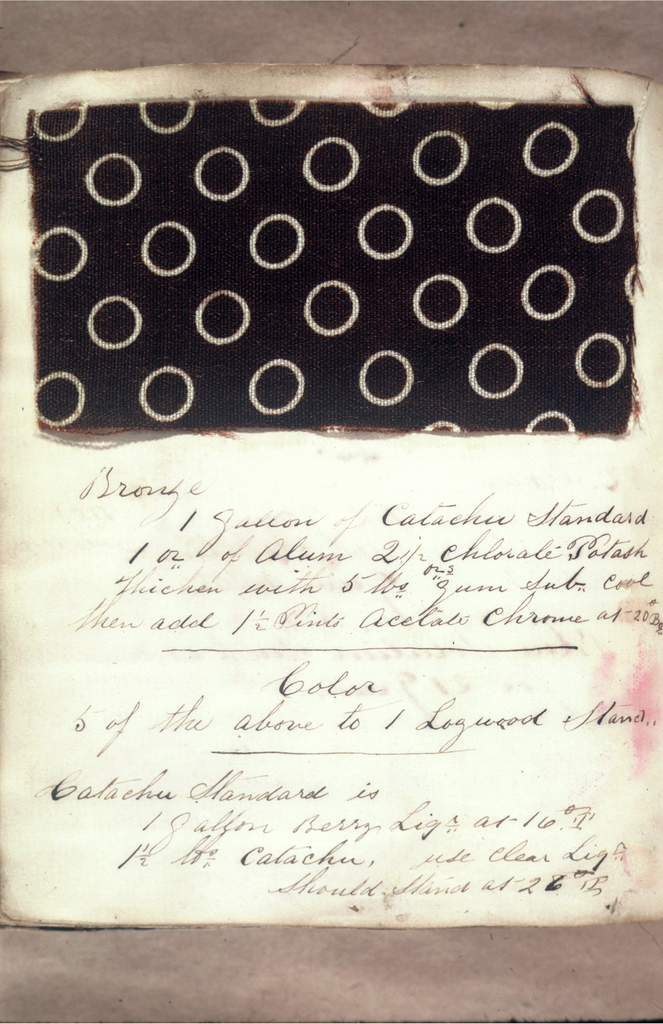 Bronze
1 Gallon of Catachu Standard
1 oz of Alum 2 1/2 ozs Chlorate Potash
Thicken with 5 lbs gum sub. cool
then add 1 1/2 Pints Acetate Chrome at 20° Be
Color
5 of the above to 1 Logwood Stand.
Catachu Standard is
1 Gallon Berry Liqr at 16° T
1 1/2 lbs Catachu, use clear Liqr
Should Stand at 26° T